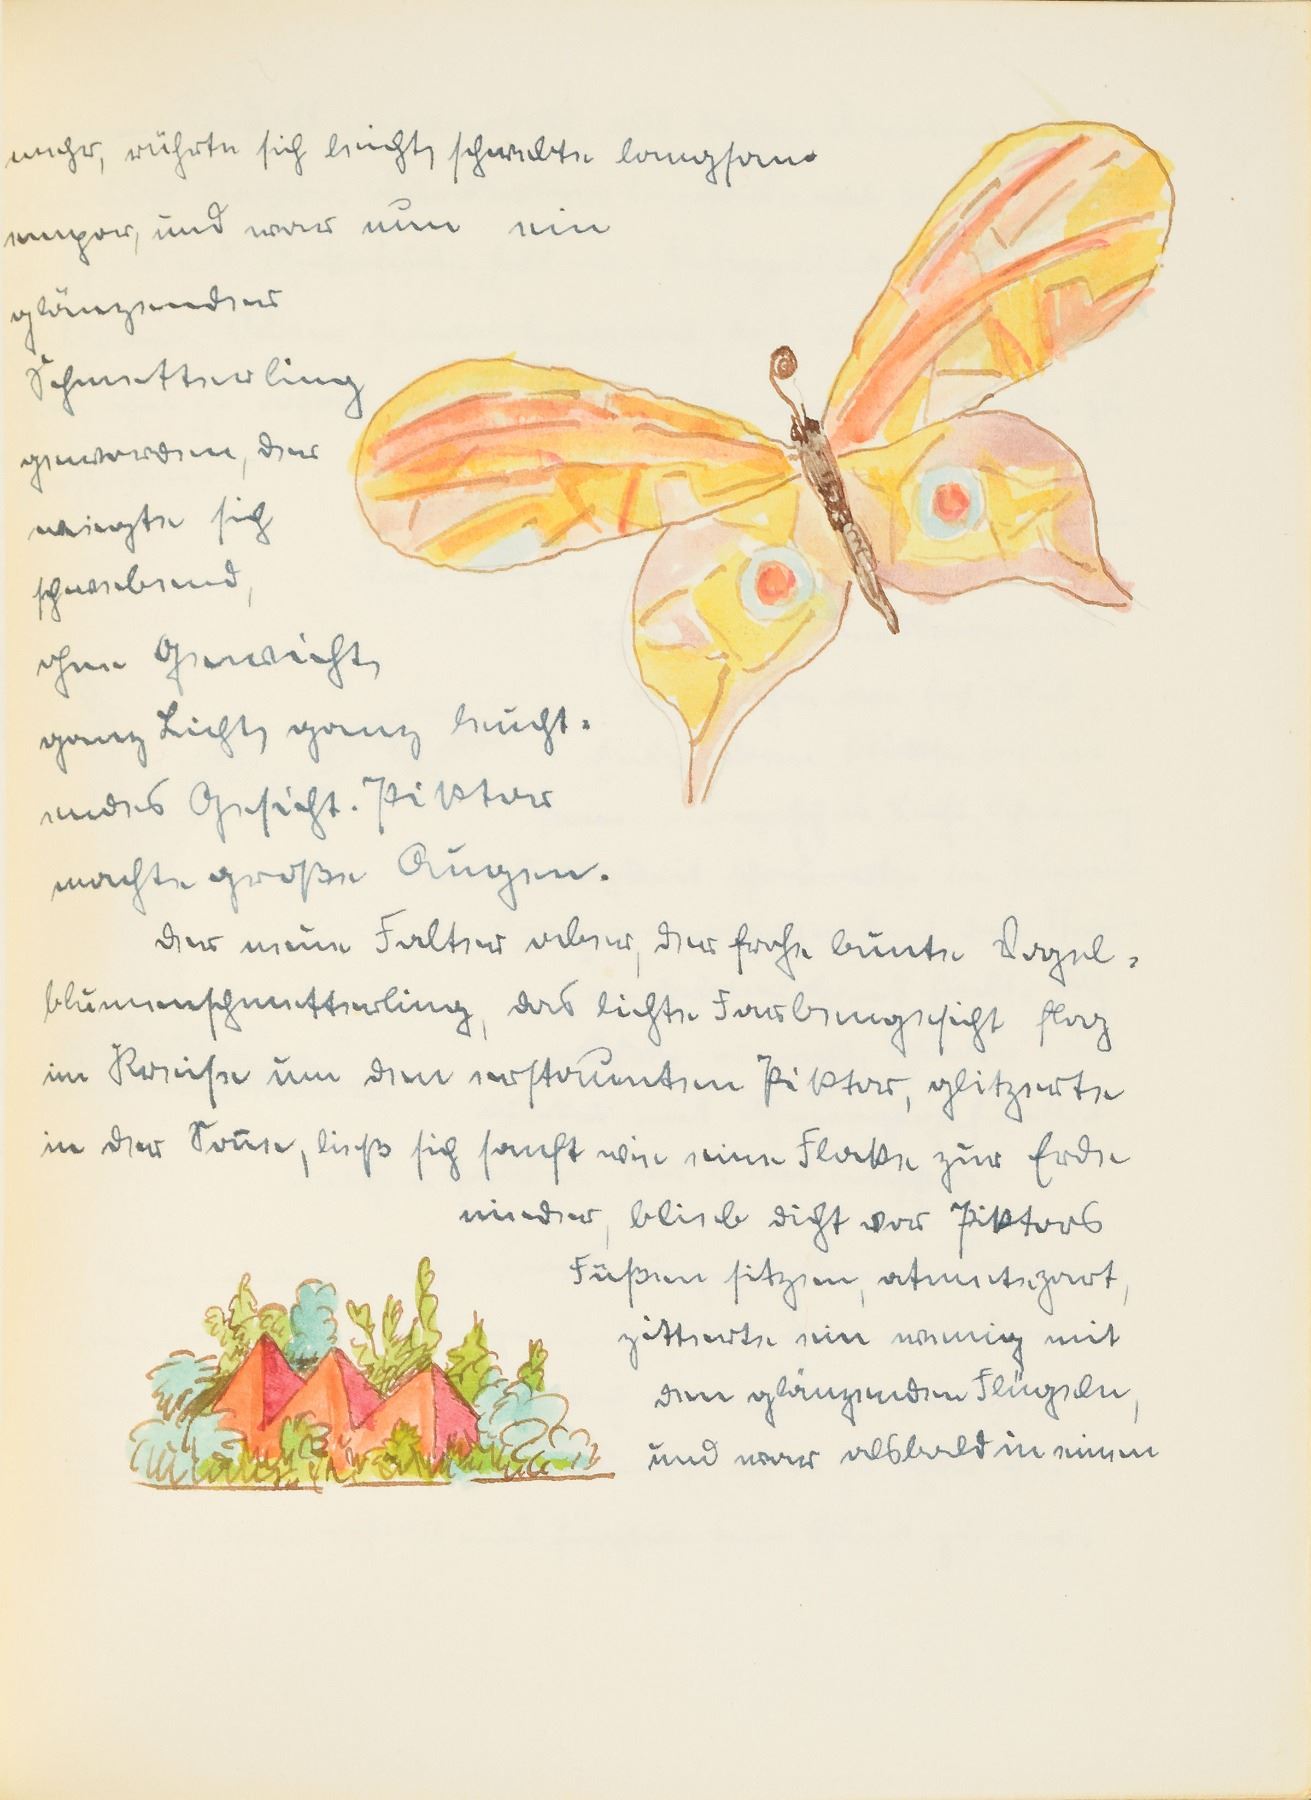 mehr, rührte sich leicht, schwebte langsam
empor, und war nun ein
glänzender
Schmetterling
geworden, der
wiegte sich
schwebend,
ohne Gewicht,
ganz Licht, ganz leucht-
endes Gesicht. Piktor
machte große Augen.
Der neue Falter aber, der frohe bunte Vogel-
blumenschmetterling, das lichte Farbengesicht flog
im Kreise um den erstaunten Piktor, glitzerte
in der Sonne, ließ sich sanft wie eine Flocke zur Erde
nieder, blieb dicht vor Piktors
Füßen sitzen, atmete zart,
zitterte ein wenig mit
den glänzenden Flügeln,
und war alsbald in einen